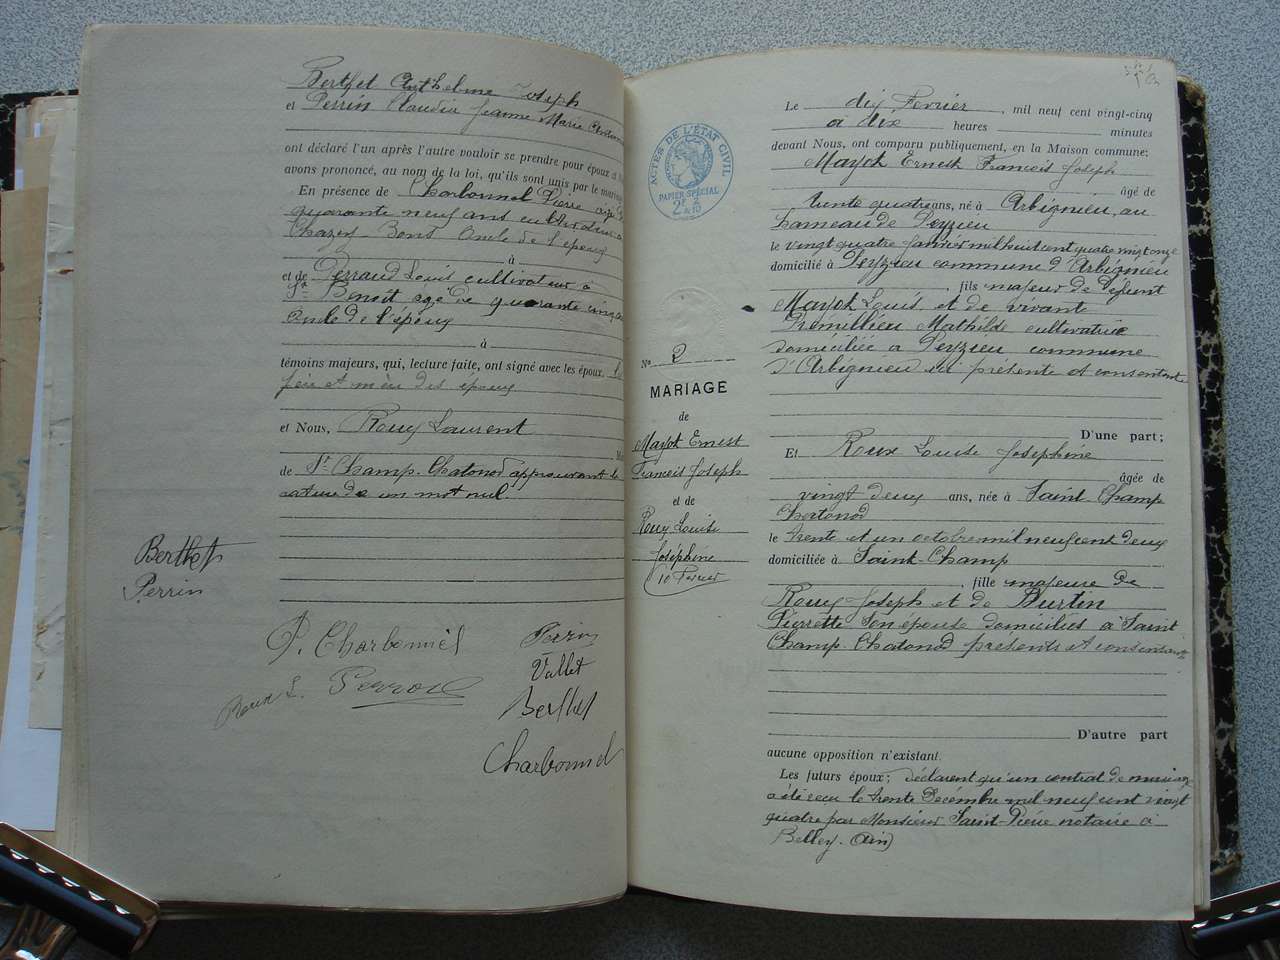 Berthet Anthelme Joseph
et Perrin Claudia Jeanne Marie
ont déclaré l'un après l'autre vouloir se prendre pour époux et
avons prononcé, au nom de la loi, qu'ils sont unis par le
En présence de Charbonnel Pierre agé
quarante neuf ans cultivateur a
Chazey Bons Oncle de l'époux
à
et de Perraud Louis cultivateur a
St Benoit agé de quarante cinq
oncle de l'époux
à
témoins majeurs, qui, lecture faite, ont signé avec les époux,
père et mère des époux
et Nous, Roux Laurent
de St Champ. Chatonod approuvant la
rature de un mot nul.
Berthet
Perrin
P. Charbonniel
Perrin
Vallet
Roux L.
Berthet
Charbonnel
ACTES DE L'ÉTAT CIVIL
PAPIER SPÉCIAL
No 2
MARIAGE
de
Mayot Ernest
Francois Joseph
et de
Roux Louise
Joséphine
10 Fevrier
Le dix Fevrier, mil neuf cent vingt-cinq
a dix heures minutes
devant Nous, ont comparu publiquement, en la Maison commune:
Mayot Ernest Francois Joseph
âgé de
trente quatre ans, né à Arbignieu, au
hameau de Peyzieu
le vingt quatre janvier mil huit cent quatre vingt onze
domicilié à Peyzieu commune d'Arbignieu
, fils majeur de Defunt
Mayot Louis et de vivante
Premillieu Mathilde cultivatrice
domiciliée a Peyzieu commune
d'Arbignieu ici présente et consentante
D'une part;
Et Roux Louise Joséphine
âgée de
vingt deux ans, née à Saint Champ
Chatonod
le trente et un octobre mil neuf cent deux
domiciliée à Saint-Champ
, fille majeure de
Roux Joseph et de Burtin
Pierrette son épouse domiciliés à Saint
Champ. Chatonod présents et consentants
D'autre part
aucune opposition n'existant.
Les futurs époux; déclarent qu'un contrat de mariage
a été recu le trente Décembre mil neuf cent vingt
quatre par Monsieur Saint-Pierre notaire à
Belley. (Ain)